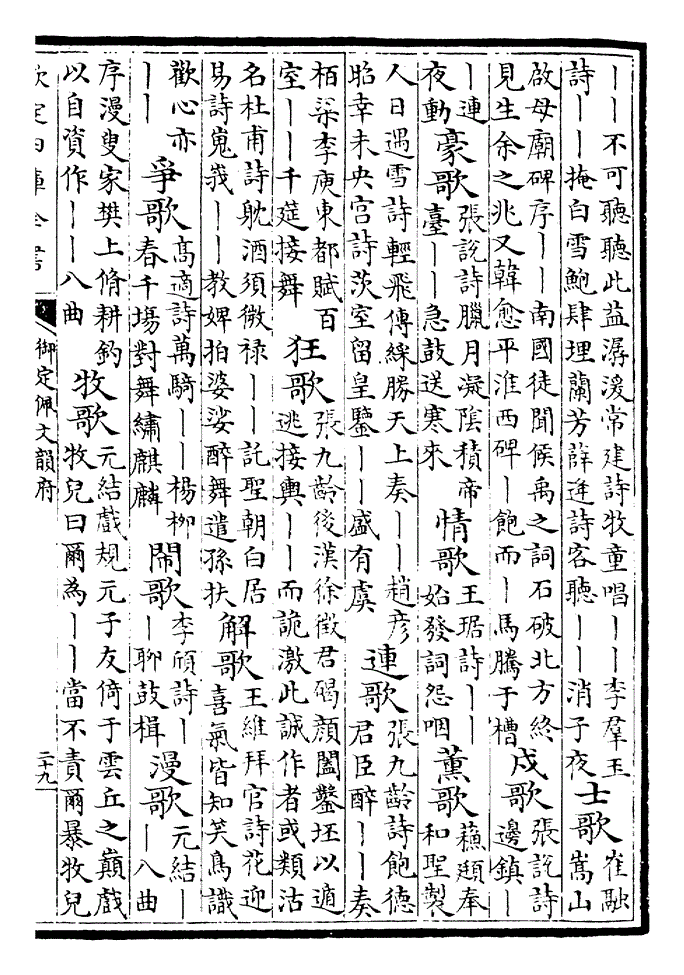 ——不可聽聽此益潺湲常建詩牧童唱——李羣玉
詩——掩白雪鮑肆埋蘭芳薛逢詩客聽——消子夜
士歌
崔融
嵩山
啟母廟碑序——南國徒聞候禹之詞石破北方終
見生余之兆又韓愈平淮西碑—飽而—馬騰于槽
戍歌
張說詩
邊鎮—
—連
夜動
豪歌
張說詩臘月凝陰積帝
臺——急鼓送寒來
情歌
王琚詩——
始發詞怨咽
薰歌
蘇頲奉
和聖製
人日遇雪詩輕飛傳綵勝天上奏——趙彦
昭幸未央宫詩茨室留皇鑒——盛有虞
連歌
張九齡詩飽德
君臣醉——奏
栢梁李庾東都賦百
室——千筵接舞
狂歌
張九齡後漢徐徵君碣顔闔鑿坯以遁
逃接輿——而詭激此誠作者或類沽
名杜甫詩躭酒須微禄——託聖朝白居
易詩嵬峩——教婢拍婆娑醉舞遣孫扶
解歌
王維拜官詩花迎
喜氣皆知笑鳥識
歡心亦
——
爭歌
高適詩萬騎——楊柳
春千場對舞繡麒麟
閙歌
李頎詩—
—聊鼓楫
漫歌
元結—
—八曲
序漫叟家樊上脩耕釣
以自資作——八曲
牧歌
元結戲規元子友倚于雲丘之巔戲
牧兒曰爾為——當不責爾暴牧兒
欽定四庫全書
御定佩文韻府
二十九